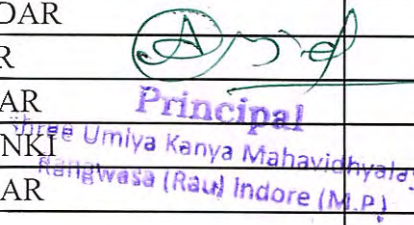 DAR
R
AR
Principal
Shree Umiya Kanya Mahavidhyalay
NKI
Rangwasa (Rau) Indore (M.P.)
AR